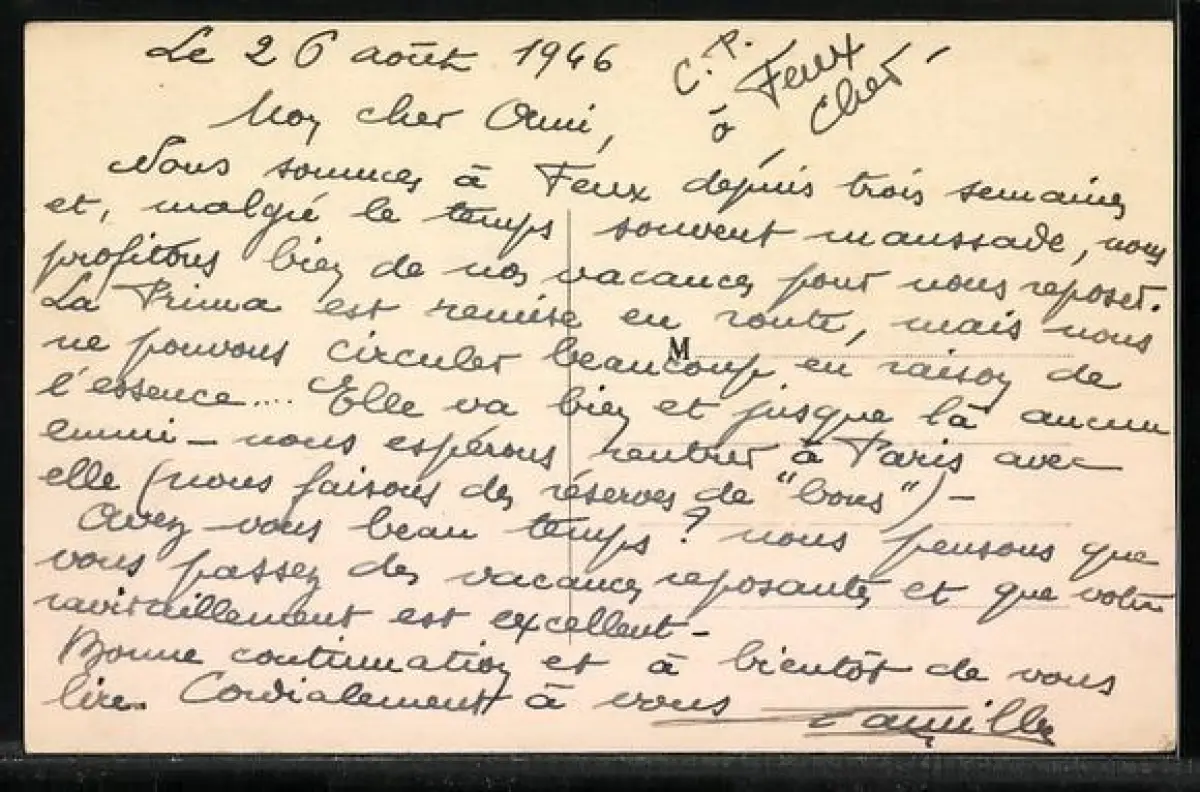 Le 26 août 1946
C.P. à Feux Cher
Mon cher Ami,
Nous sommes à Feux depuis trois semaines
et, malgré le temps souvent maussade, nous
profitons bien de nos vacances pour nous reposer.
La Prima est remise en route, mais nous
ne pouvons circuler beaucoup en raison de
M
l'essence.... Elle va bien et jusque là aucun
ennui - nous espérons rentrer à Paris avec
elle (nous faisons des réserves de "bons") -
Avez-vous beau temps? nous pensons que
vous passez des vacances reposantes et que votre
ravitaillement est excellent -
Bonne continuation et à bientôt de vous
lire. Cordialement à vous